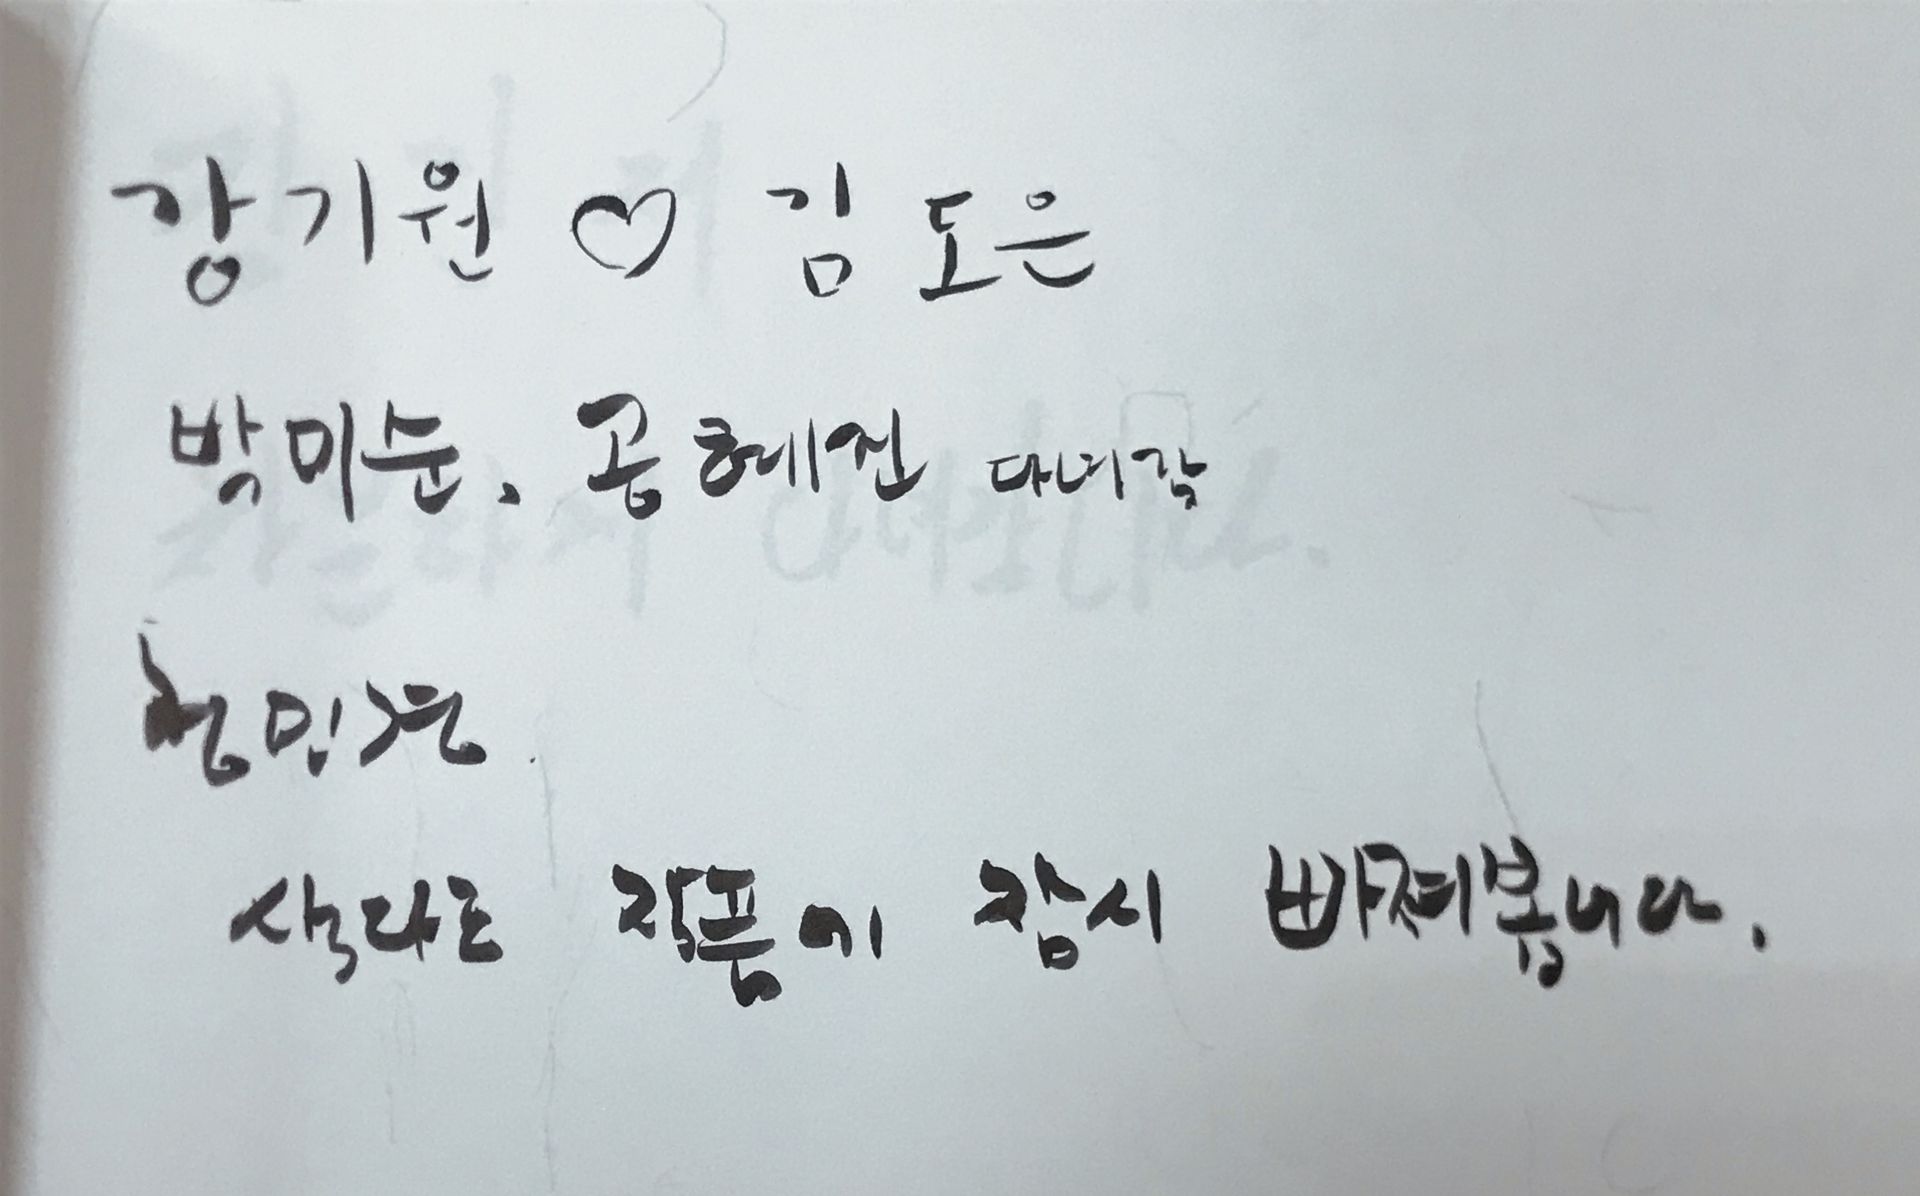 강기원 ♡ 김도은
박미순, 공혜진 다녀감
색다른 작품에 잠시 빠져봅니다.